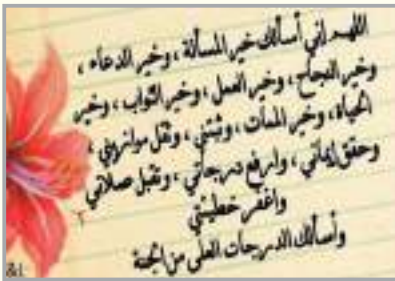 اللهم إني أسألك خير المسألة ، وخير الدعاء ،
وخير النجاح ، وخير العمل ، وخير الثواب ، وخير
الحياة ، وخير الممات ، وثبتني ، وثقل موازيني ،
وحقق إيماني ، وارفع درجاتي ، وتقبل صلاتي
واغفر خطيئتي
وأسألك الدرجات العلى من الجنة